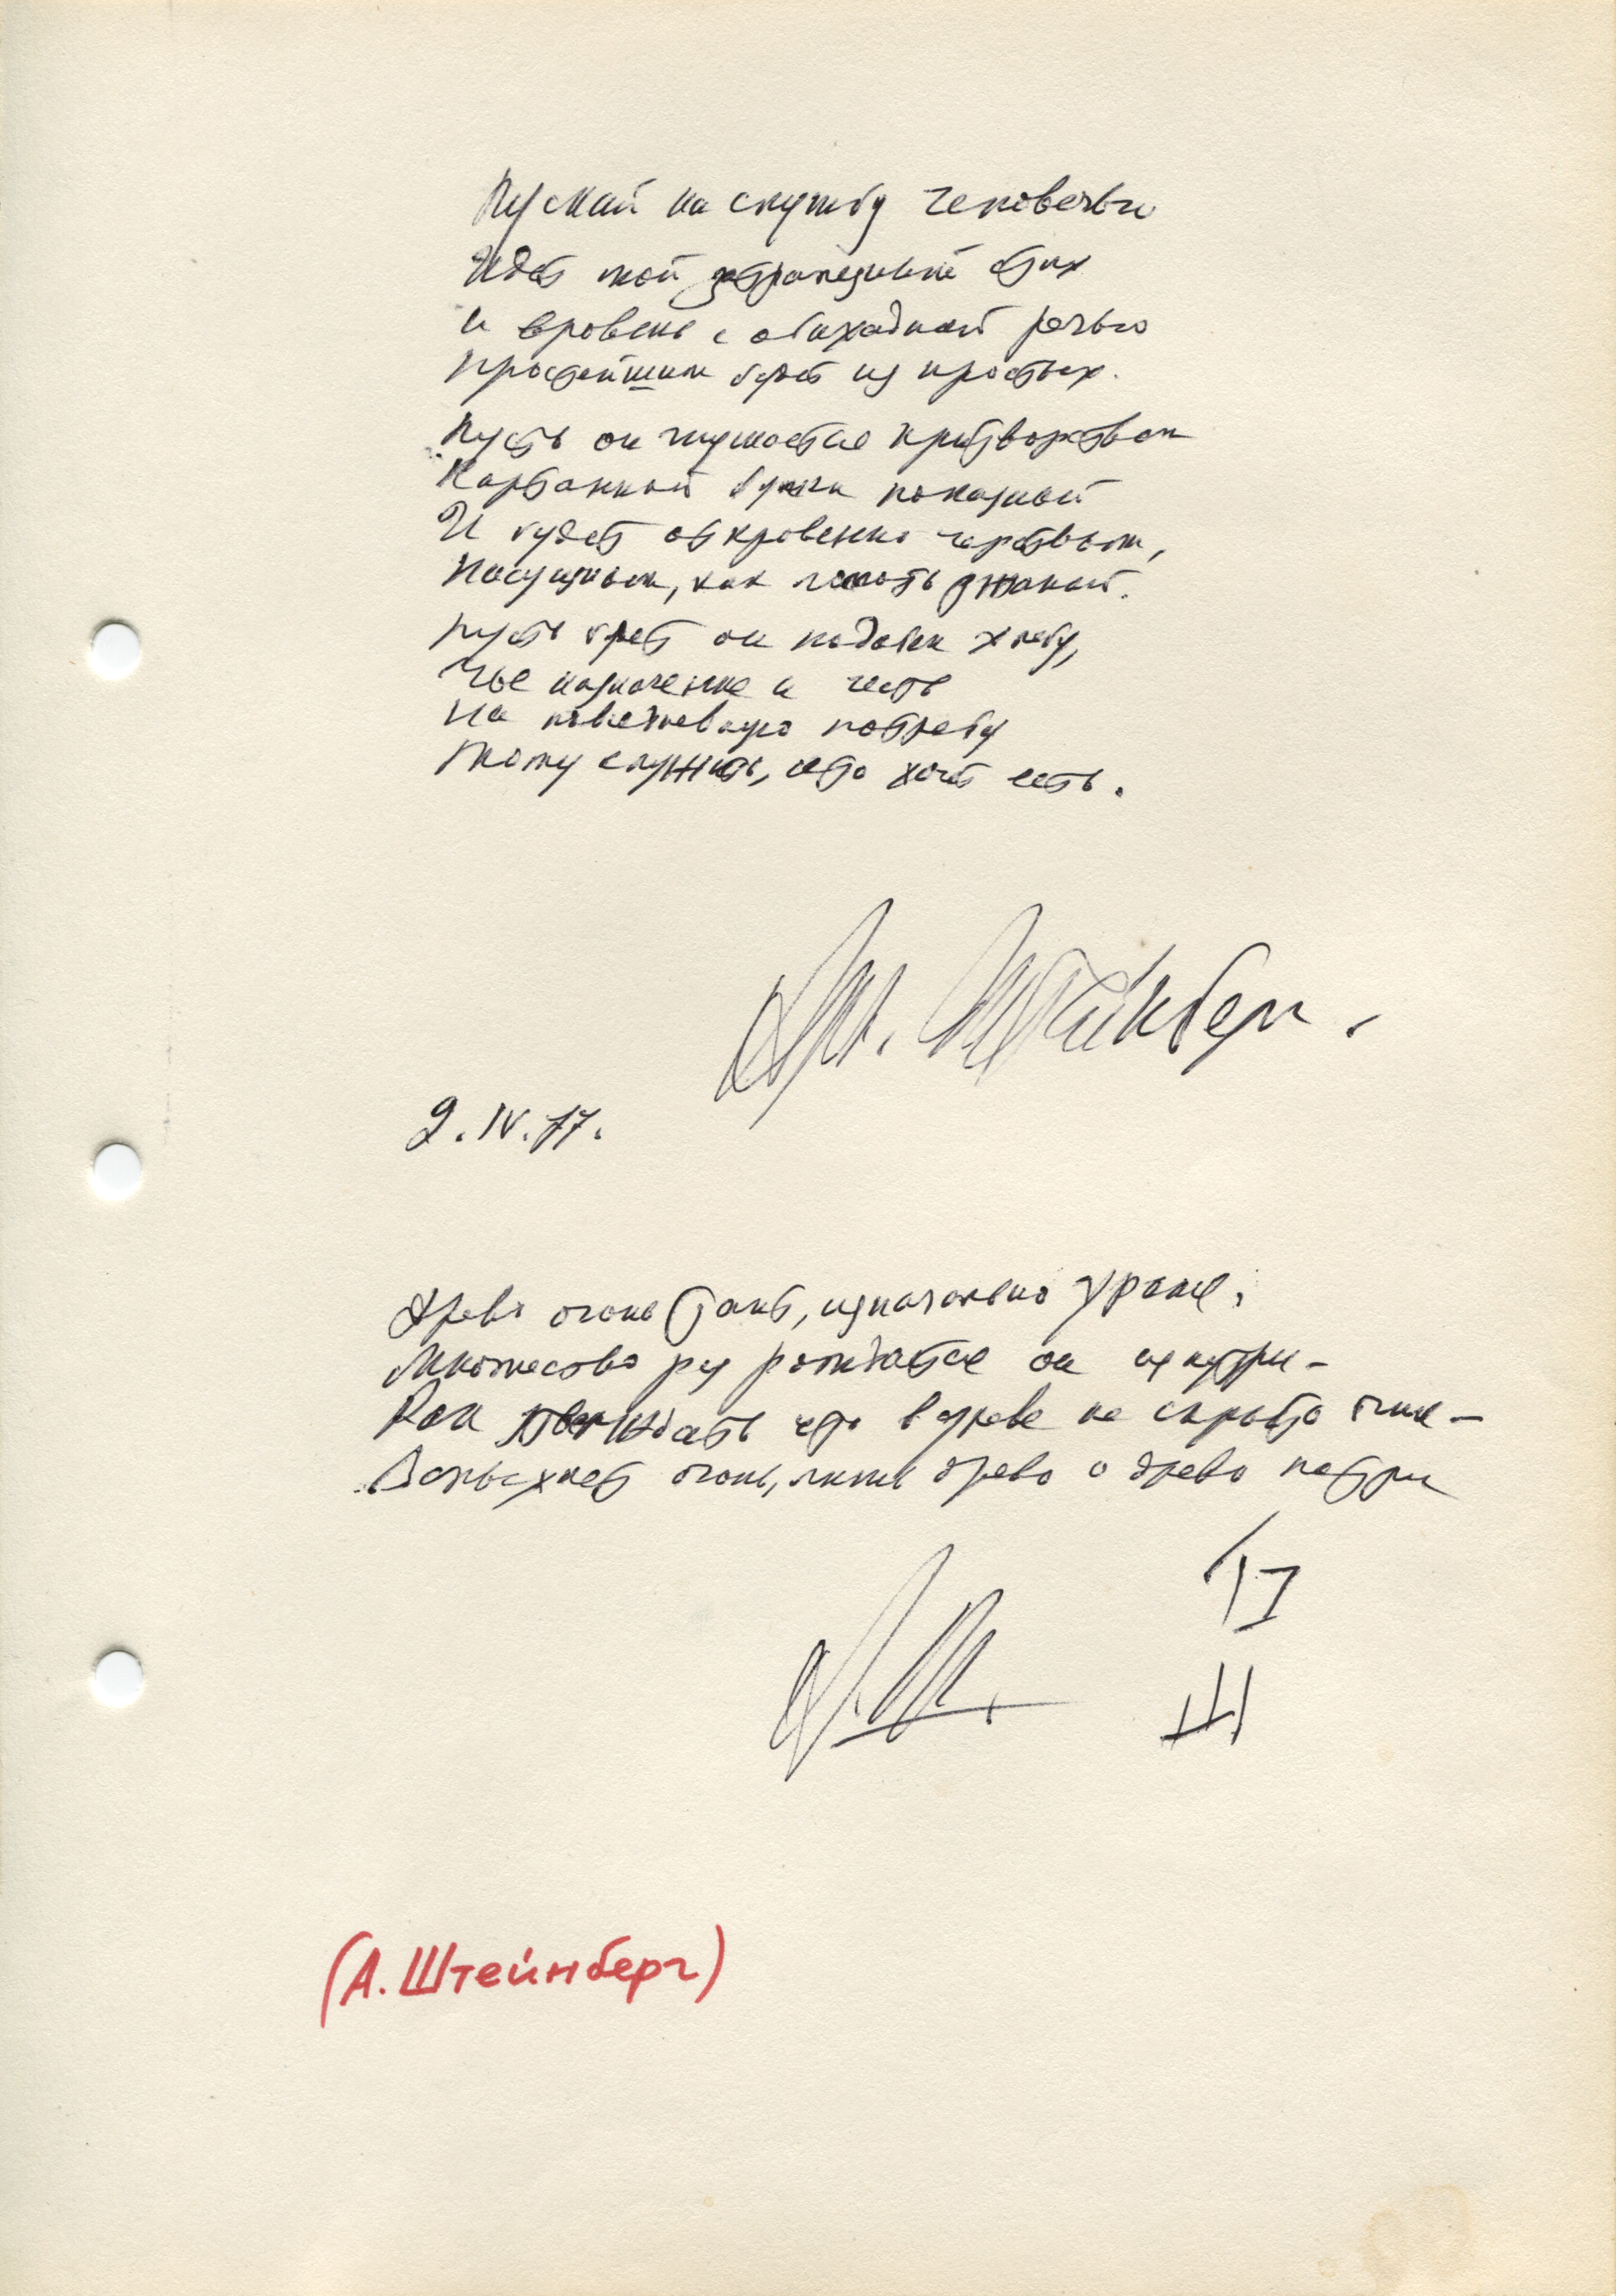 Пускай на службу человечью
Идет мой затрапезный стих
и вровень с обиходной речью
простейшим будет из простых.
Пусть он гнушается притворством
Картонной булки показной
И будет откровенно черствым,
Насущным, как ломоть ржаной.
Пусть будет он подобен хлебу,
Чье назначение и честь
На повседневную потребу
Тому служить, кто хочет есть.
Арк. Штейнберг.
2.IV.77.
Древо огонь таит, изначально храня,
Множество раз рождается он изнутри –
Как утверждать что в древе не скрыто огня –
Вспыхнет огонь, лишь древо о древо потри
А. Ш.
(А. Штейнберг)